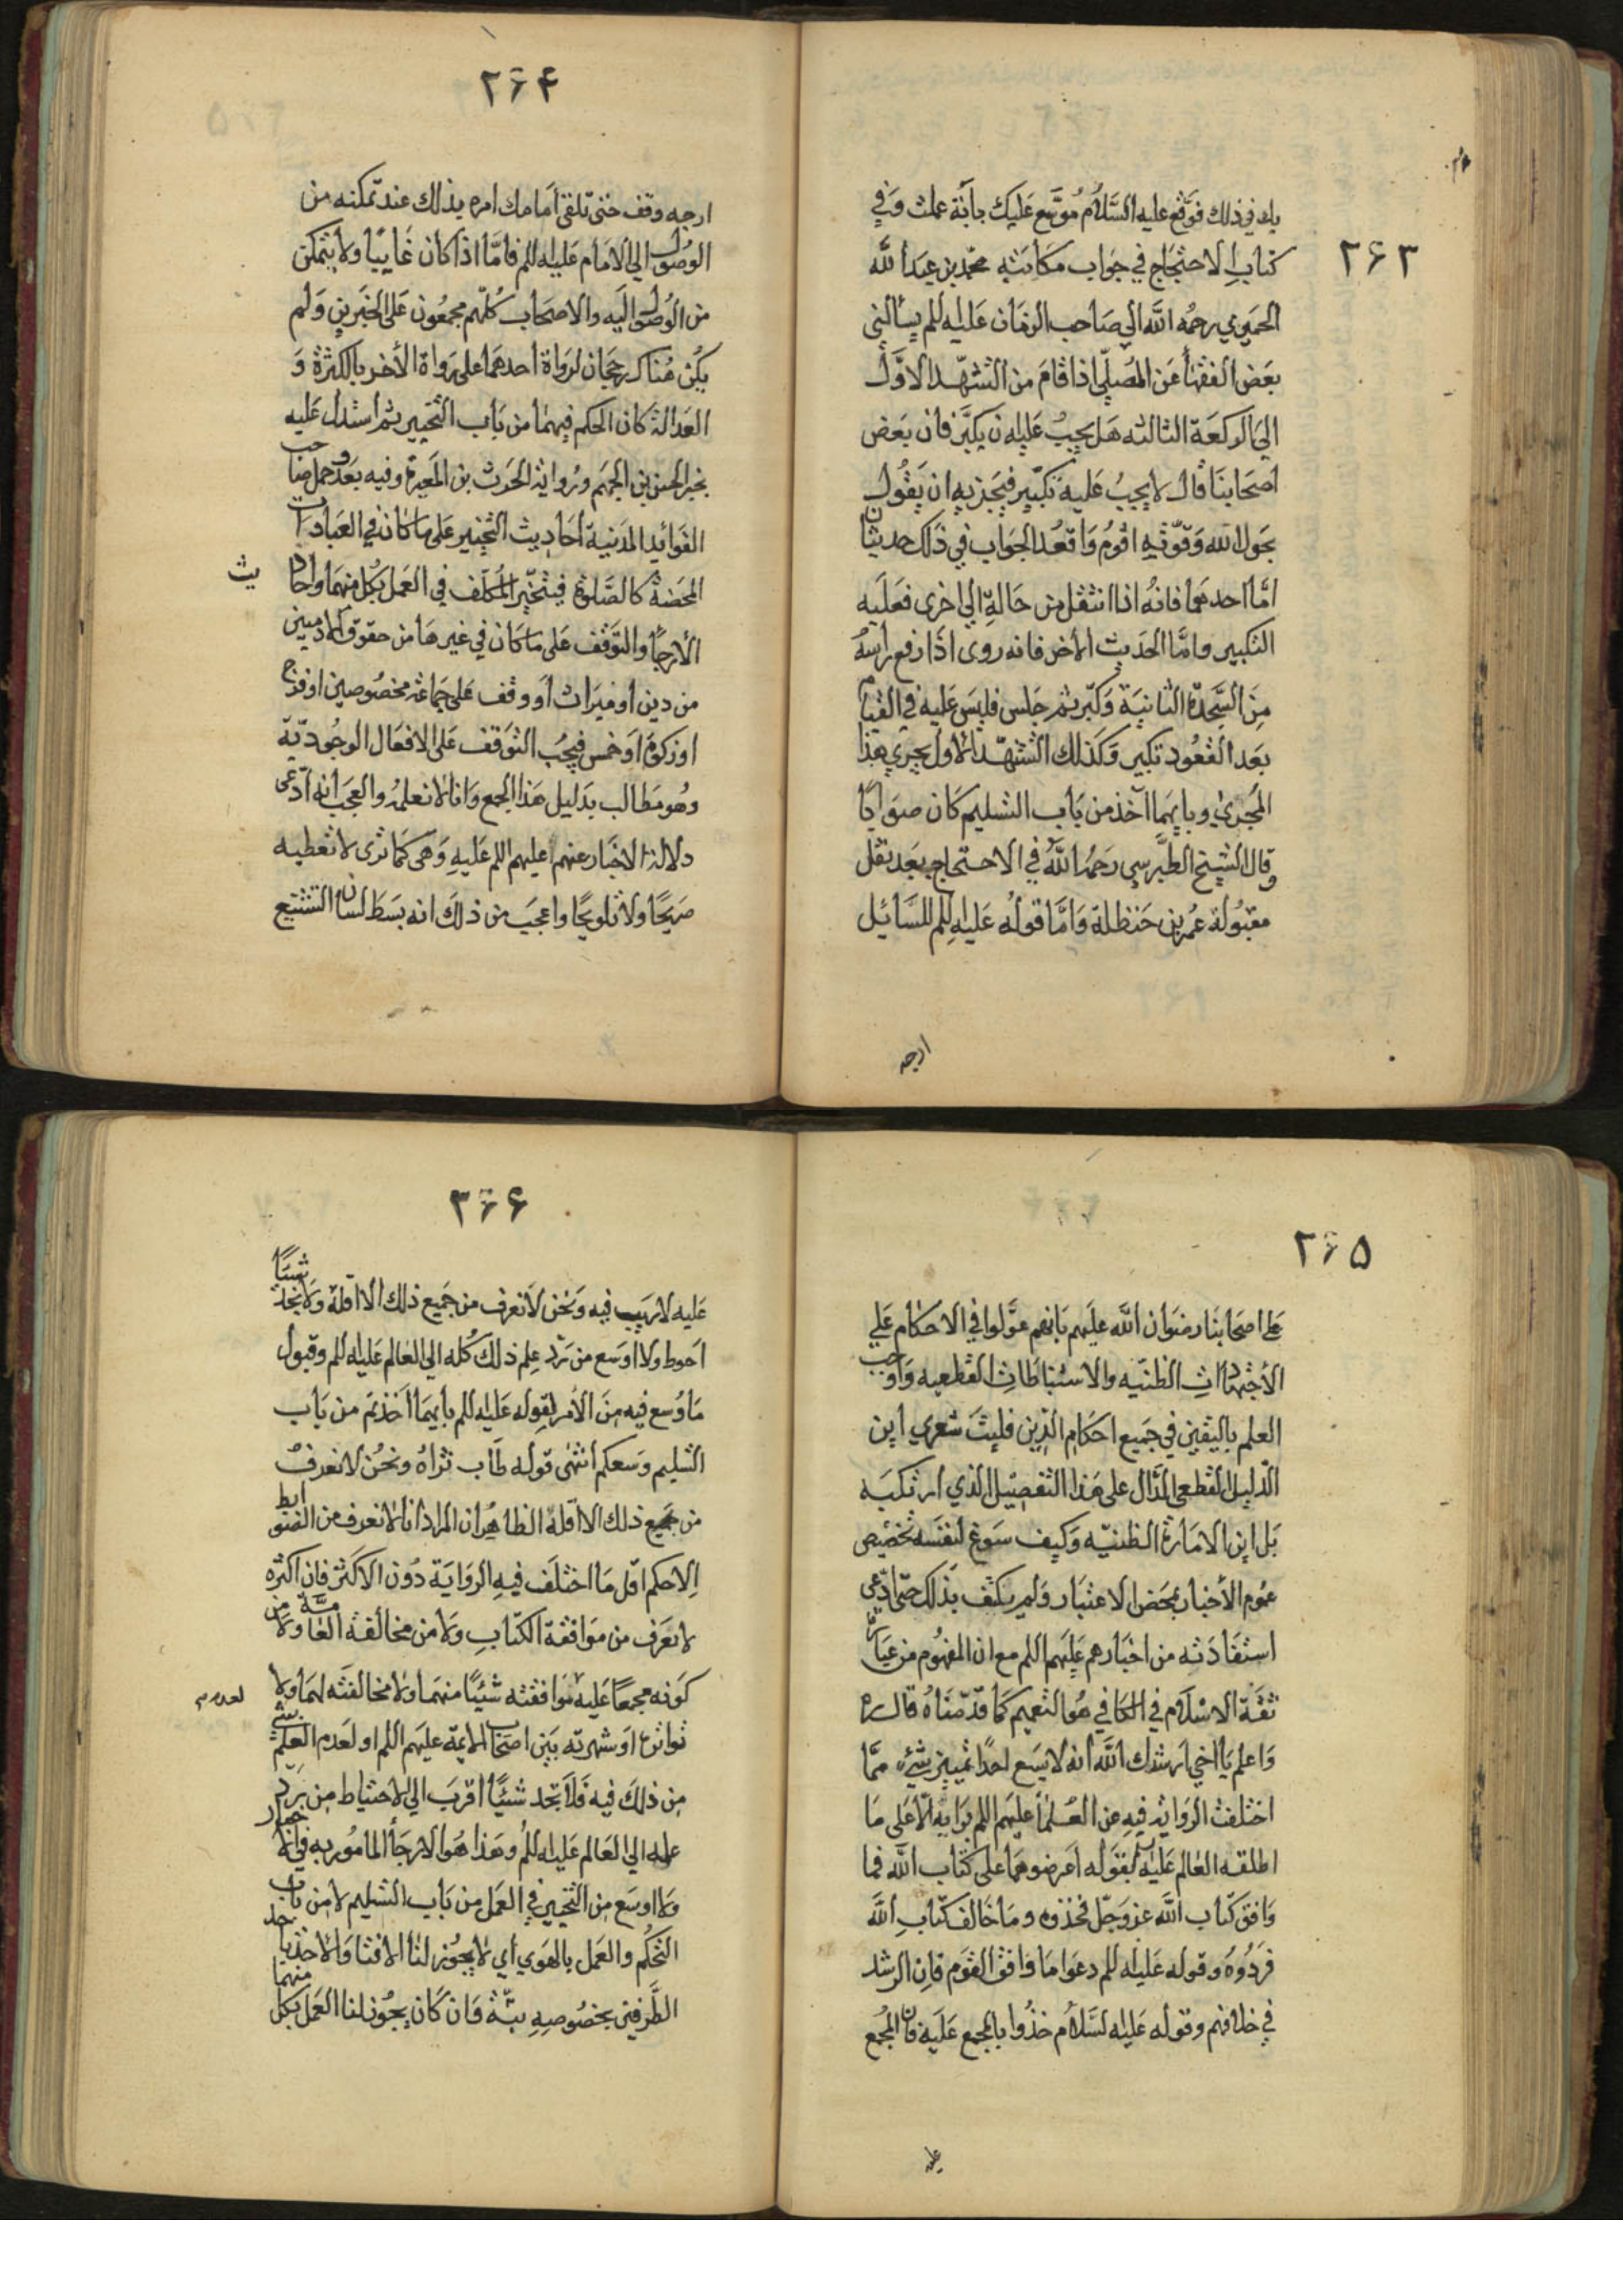 ٢۶٣
بك في ذلك فوقّع عليه السَّلامُ مُوسّع عَليك باَيّة عملت وَفي
كتابِ الاحتجَاج في جَواب مكَاتبَة محمّد بن عبَد الله
الحميري رحمُه الله الي صَاحب الزمَان عَليه للم يسالني
بعَض الفقهأ عَن المصَلّي اذا قامَ من التشهّد الاوَّل
الي الركعَة الثالثه هَل يجبُ عَليه ان يكبَّر فان بعَض
اصحَابنَا قال لا يجبُ عَليه تكبير فيجَزيه ان يَقُول
بحَول الله وَقوّته اقُومُ وَاقعُد الجوَاب في ذَلك حديثان
امَّا احدهمَا فانهُ اذا انتقل من حَالةٍ الي اخرى فعَلَيه
التكبير وامَّا الحَديث الأخر فانه روى اذَا رفع رأسهُ
مِنَ السَّجدة الثَانيَة وَكبّر ثم جَلس فليسَ عَليه في القيام
بعَد القعُود تكبير وَكذلك التشهّد الأول يجري هذا
المجرىٰ وبايهمَا اَخذ من بَاب التسليم كَان صوَابًا
وقال الشيخ الطَّبرسي رَحمُه اللهُ في الاحتجاج بعَد نقل
مقبُولة عُمر بن حَنظلة وَامَّا قولُه عَليهِ للم للسَّائل
ارجه
٢۶۴
ارجه وقف حتى تلقى اَمَامك امره بذلك عند تمكنه من
الوصُول الي الامَام عَليه للم فامَّا اذا كان غَايبًا ولا يتمكن
من الوُصُول اليَه والاصحَاب كُلّهم مجمعُون عَلى الخَبرين وَلم
يكُن هُناك رجحَان لرَواة احدهمَا على رَواة الأخر بالكثرة وَ
العَدالة كان الحكم فيهمَا من بَاب التخيير ثم استدل عَليه
بخبر الحسن بن الجهَم ورُواية الحَرث بن المغيرة وفيه بعَد وحمل صاحب
الفوَائد المَدنية اَحَاديث التخيير عَلى ما كان في العبَادات
المحَضة كالصَّلوة فيتخيّر المكلّف في العَمل بكُل منهمَا واحاديث
الأرجأ والتَوقف عَلى ما كان في غيرهَا من حقوق الادميين
من دين أو ميَراث أو وقف عَلى جمَاعَة مخصُوصين اوفَرج
اوزكوة اَوخمس فيجبُ التوَقف عَلى الافعَال الوجُوديّة
وهُو مطالب بدَليل هَذا الجمع وَانا لا نعلمُه والعجَب انه ادّعى
دلالة الاخبَار عنهم عليهم اللم عَليهِ وَهى كمَا ترى لا تعَطيه
صَريحًا ولا تلويحًا واعجَب من ذلكَ انه بسَط لسَان التشنيع
٢۶۵
عَلى اصحَابنَا رضوَان الله عليَهم بَانهم عَوَّلوا في الاحكام عَلي
الأجتهادات الظنيّه والاستنباطَاتِ القطعيه وَاوجب
العلم باليَقين في جَميع احكَام الدين فليتَ شعري اَين
الدّليل القطعي الدَّال على هَذا التفصيل الذي ارتكبَه
بَل اين الامَارة الظنيّه وَكيف سَوغ لنفسَه تخصيص
عمُوم الأخبار بمحَض الاعتبَار وَلم يكتف بذَلك حتّى ادّعى
استفَادَته من اخبَارهم عَليهَم اللم مع ان المفهُوم من عبَارة
ثقَة الاسْلام في الكافي هُو التعميم كَما قدّمنَاهُ قال ره
وَاعلم يَا اخي ارشدك اللهُ انه لا يسَع احدًا تمييز شيء ممّا
اختلفت الروَاية فيهِ عن العُلمَأ عليهَم اللم برَايه الاّ عَلى مَا
اطلقه العَالم عَليه لم بقَوله اعَرضوهمَا على كتَاب الله فما
وَافق كتَاب الله عز وَجلّ فخذوه ومَا خَالف كتَابِ الله
فرَدُّوهُ وقوله عَليه للم دعَوا مَا وَافق القوَم فان الرشد
في خلافهم وقوله عَليه لسَّلام خذُوا بالمجمع عَليَه فان المجُمع
عليه
٣۶۶
عَليه لا ريَب فيه وَنحن لا نعرف من جَميع ذلك الا اقلهُ وَلا نجد شَيئًا
اَحوط ولا اوسَع من رَدّ عِلم ذلك كُله الي العَالم عَليه للم وقبول
مَا وُسع فيه مِنَ الأمر بقولِه عَليه للم بأيهمَا اَخذتم من بَاب
التسليم وَسعكم انتهىٰ قوله طَاب ثرَاهُ ونحنُ لا نعرفُ
من جَميع ذلك الا اقلهُ الظاهُر ان المراد انا لا نعرف من الضوابط
اِلا حكم اقل مَا اختلفَ فيهِ الروَايَة دُون الاكثر فان اكثره
لا يعَرف من مَوافقة الكتابِ وَلا من مخالفة العَامّة ولا من
كوَنه مجمعًا عَليه مَوافقته شَيئًا منهمَا ولا مخالفته لهمَا ولا
تواتره اوَ شهرته بَين اصحَاب الايمّة عليَهم اللم او لعَدم العلم بشئ
مِن ذلكَ فيه فَلا تجد شيئًا اقرَب الي الاحتياط من رَدّ
علمه الي العَالم عَليه للم وهَذا هُوا لارجَأ المأمُور به في الاخبار
وَلا اوسَع مِن التخيير في العَمل من بَاب التسليم لا من باب
التحكُم والعَمل بالهَوي أي لا يجُوز لنا الافتَا وَالاخذ باحد
الطَّرفين بخصُوصِهِ بتّة وَان كَان يجُوز لنا العمَل بكل منهما